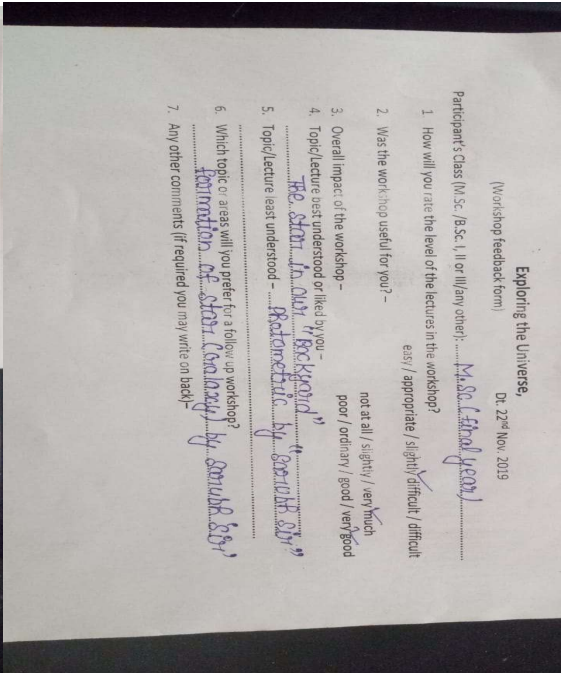 Exploring the Universe,
(Workshop feedback form) Dt. 22nd Nov. 2019
Participant's Class (M.Sc. /B.Sc. I, II or III/any other): M.Sc. (final year)
1 How will you rate the level of the lectures in the workshop?
easy / appropriate / slightly difficult / difficult
2. Was the workshop useful for you? –
not at all / slightly / very much
3. Overall impact of the workshop –
poor / ordinary / good / very good
4. Topic/Lecture best understood or liked by you –
The star in our "Backyard"
5. Topic/Lecture least understood – Photometric by "Sourabh Sir"
6. Which topic or areas will you prefer for a follow up workshop?
formation of star (Galaxy) by Sourabh "Sir"
7. Any other comments (if required you may write on back)–